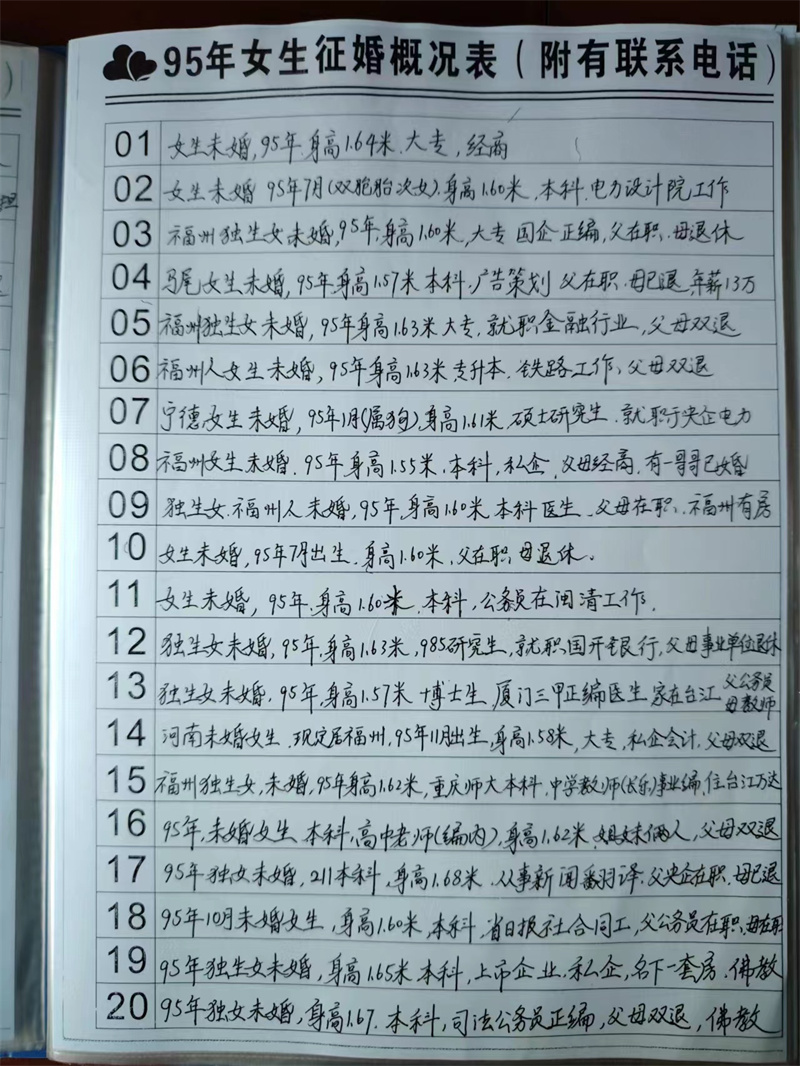 95年女生征婚概况表（附有联系电话）
01 女生未婚,95年.身高1.64米.大专,经商
02 女生未婚 95年7月(双胞胎次女).身高1.60米.本科.电力设计院工作
03 福州独生女未婚,95年,身高1.60米,大专 国企正编,父在职.母退休
04 马尾女生未婚,95年身高1.57米 本科.广告策划 父在职.母已退 年薪13万
05 福州独生女未婚,95年身高1.63米大专.就职金融行业,父母双退
06 福州人女生未婚,95年身高1.63米专升本.铁路工作、父母双退
07 宁德女生未婚,95年1月(属狗),身高1.61米.硕士研究生.就职于央企电力
08 福州女生未婚.95年.身高1.55米.本科,私企.父母经商.有一哥哥已婚
09 独生女.福州人未婚,95年,身高1.60米.本科医生.父母在职、福州有房
10 女生未婚,95年7月出生.身高1.60米.父在职.母退休.
11 女生未婚,95年.身高1.60米.本科,公务员在闽清工作.
12 独生女未婚,95年,身高1.63米,985研究生,就职国开银行,父母事业单位退休
13 独生女未婚.95年,身高1.57米 博士生.厦门三甲正编医生.家在台江 父公务员
母教师
14 河南未婚女生.现定居福州,95年11月出生,身高1.58米,大专,私企会计,父母双退
15 福州独生女,未婚,95年身高1.62米,重庆师大本科.中学教师(长乐)事业编,住台江万达
16 95年,未婚女生.本科,高中老师(编内),身高1.62米.姐妹俩人,父母双退
17 95年独女未婚,211本科,身高1.68米.从事新闻翻译.父央企在职.母已退
18 95年10月未婚女生,身高1.60米,本科,省日报社合同工,父公务员在职,母在职
19 95年独生女未婚,身高1.65米.本科,上市企业.私企,名下一套房.佛教
20 95年独女未婚,身高1.67.本科,司法公务员正编,父母双退,佛教